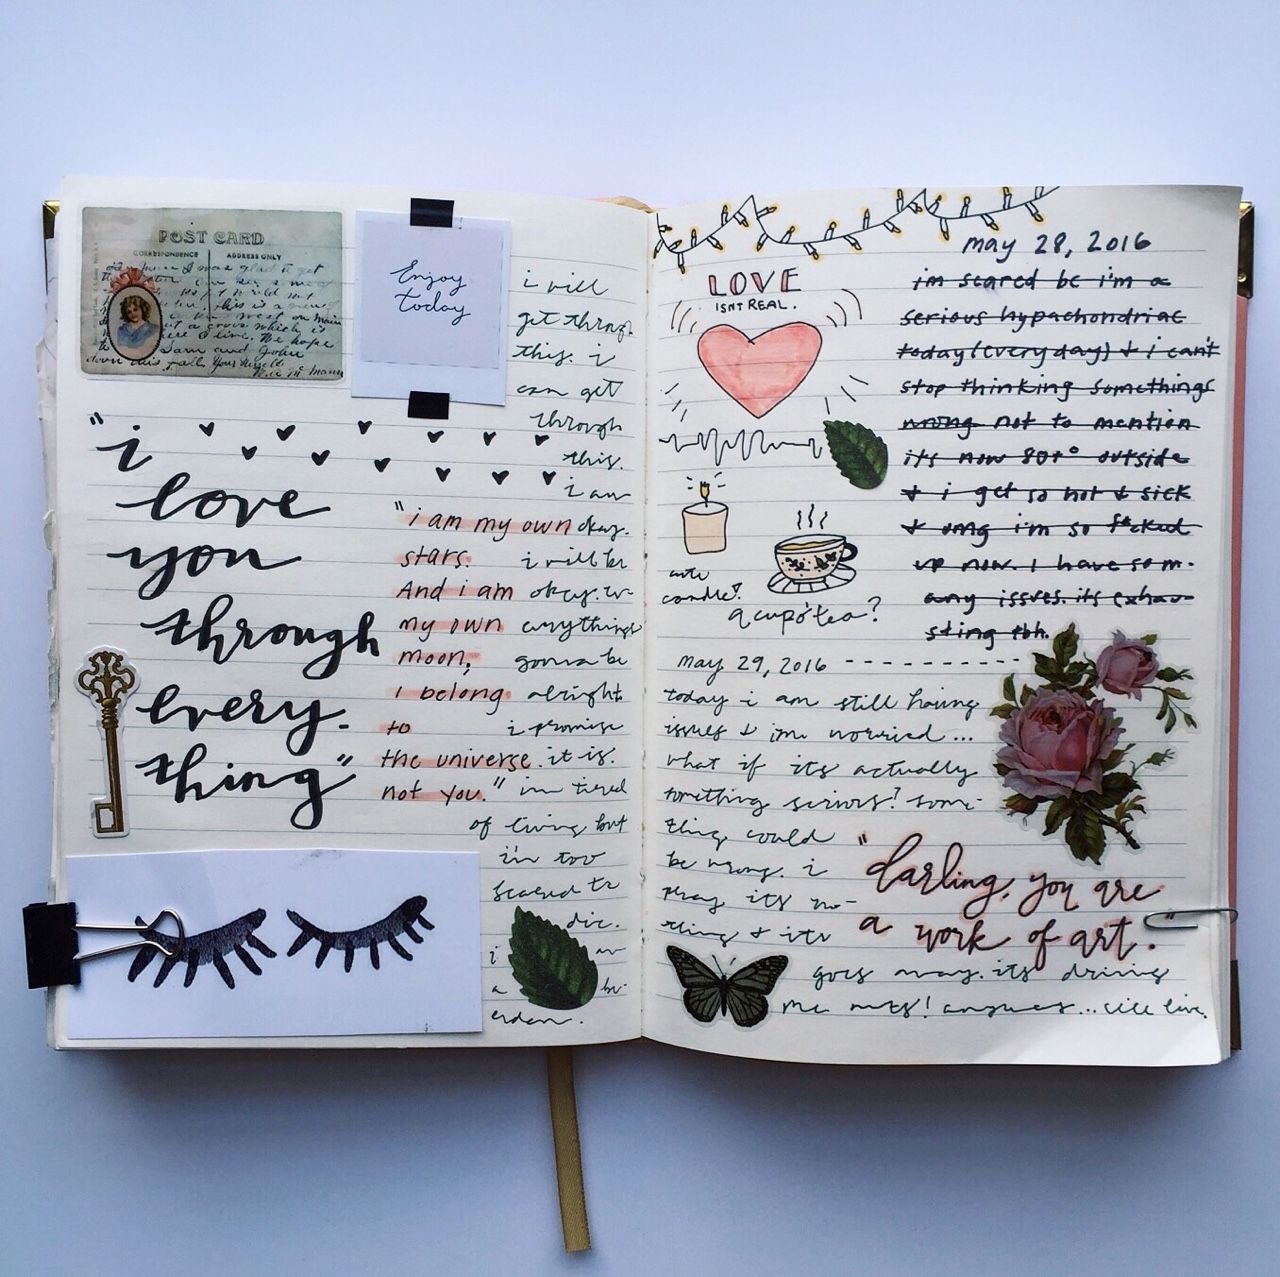 POST CARD
CORRESPONDENCE
ADDRESS ONLY
Enjoy
today
i will
get through
this. i
can get
through
this.
i am
okay.
i will be
okay.
everything's
gonna be
alright
i promise
it is.
im tired
of living but
i'm too
scared to
die.
i am
a bu-
erden.
"i
love
you
through
every-
thing"
"i am my own
stars.
And i am
my own
moon,
i belong
to
the universe
not you."
LOVE
ISNT REAL.
cute
candle?
a cup o' tea?
may 28, 2016
im scared bc i'm a
serious hypachondriac
today (everyday) & i can't
stop thinking somethings
wrong not to mention
its now 80+° outside
& i get so hot & sick
& omg i'm so f*cked
up now. I have so m-
any issues. its exhau-
sting tbh.
may 29, 2016
today i am still having
issues & im worried...
what if its actually
something serious? some-
thing could
be wrong. i
pray its no-
thing & its
"darling, you are
a work of art."
goes away. its driving
me nuts! anyways... ill live.